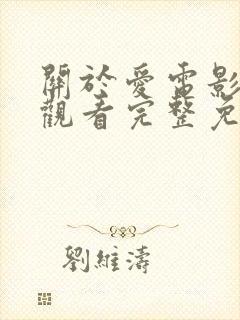 關於愛電影
觀看完整免
劉維濤